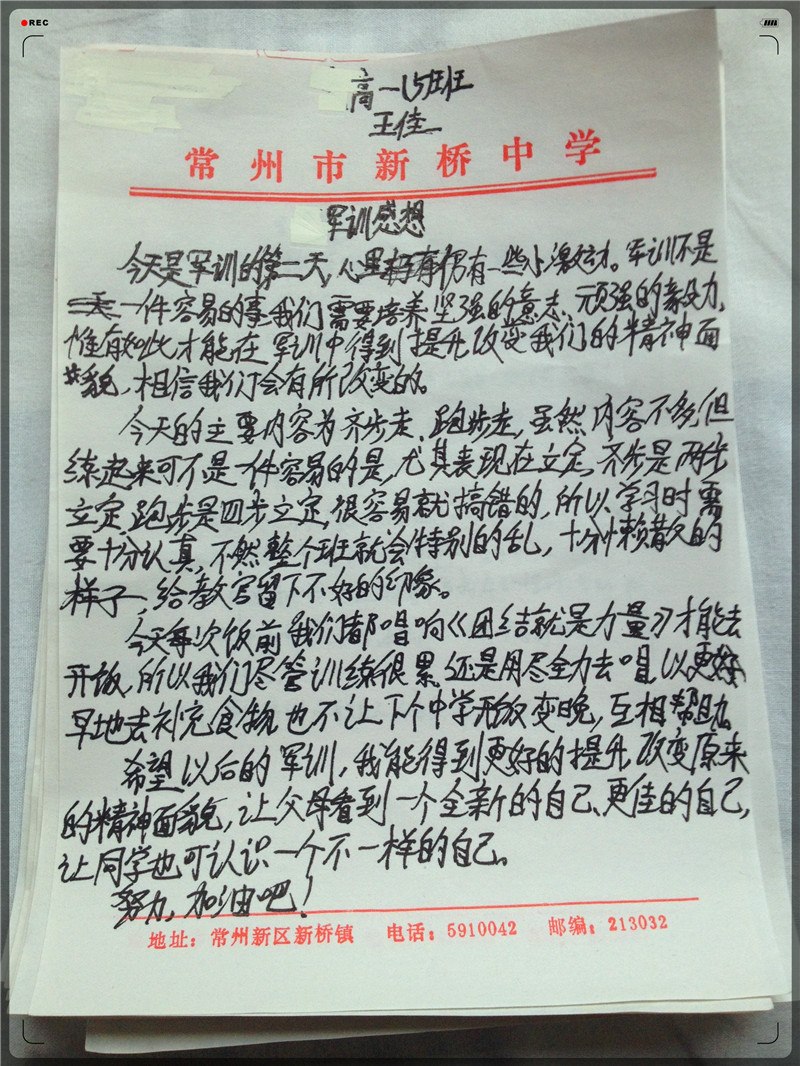 REC
高一(5)班
王佳
常州市新桥中学
军训感想
今天是军训的第二天,心里仍有一些小激动。军训不是
一件容易的事我们需要培养坚强的意志、顽强的毅力,
惟有如此才能在军训中得到提升改变我们的精神面
貌,相信我们会有所改变的。
今天的主要内容为齐步走、跑步走,虽然内容不多,但
练起来可不是一件容易的是,尤其表现在立定,齐步是两步
立定,跑步是四步立定,很容易就搞错的,所以学习时需
要十分认真,不然整个班就会特别的乱,十分懒散的
样子,给教官留下不好的印象。
今天每次饭前我们都唱响《团结就是力量》才能去
开饭,所以我们尽管训练很累,还是用尽全力去唱,以更好
早地去补充食物,也不让下个中学开饭变晚,互相帮助。
希望以后的军训,我能得到更好的提升,改变原来
的精神面貌,让父母看到一个全新的自己、更佳的自己,
让同学也可认识一个不一样的自己。
努力,加油吧!
地址:常州新区新桥镇 电话:5910042 邮编:213032